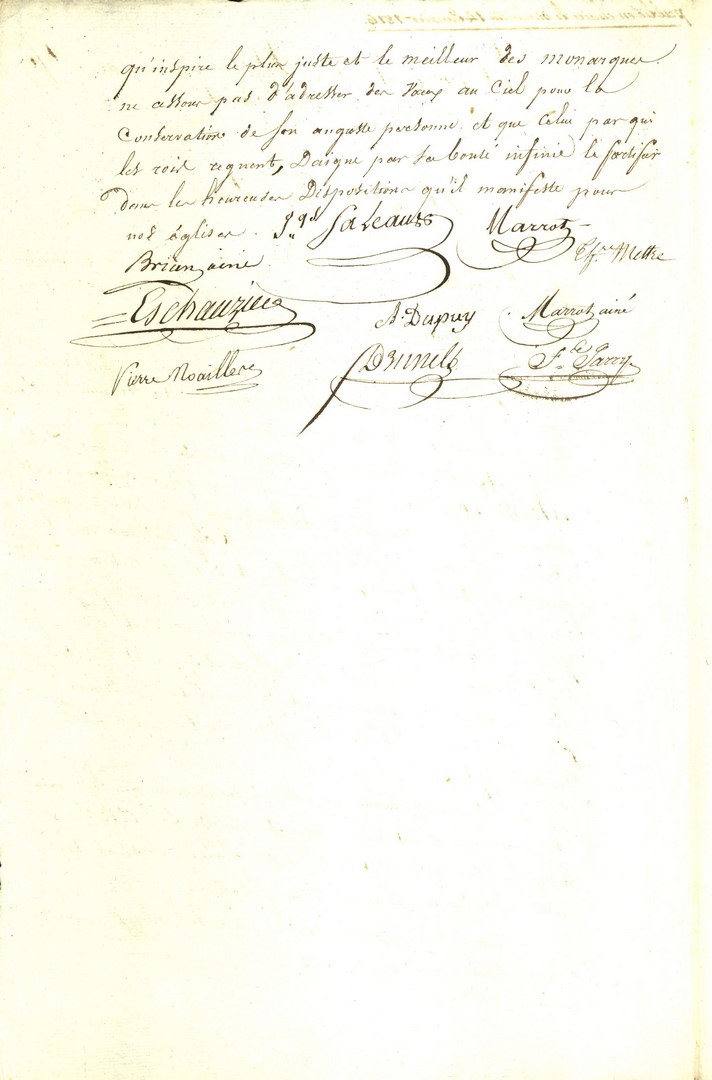 qu'inspire le plus juste et le meilleur des monarques.
ne cessons pas d'adresser des Vœux au Ciel pour la
Conservation de son auguste personne. et que Celui par qui
les rois regnent, Daigne par sa bonté infinie le fortifier
dans les heureuses Dispositions qu'il manifeste pour
nos églises.
Marrot
Mettre
Brian ainé
Eschauzier
A. Dupuy
Marrot ainé
Pierre Noaillere
Brunel
Parry